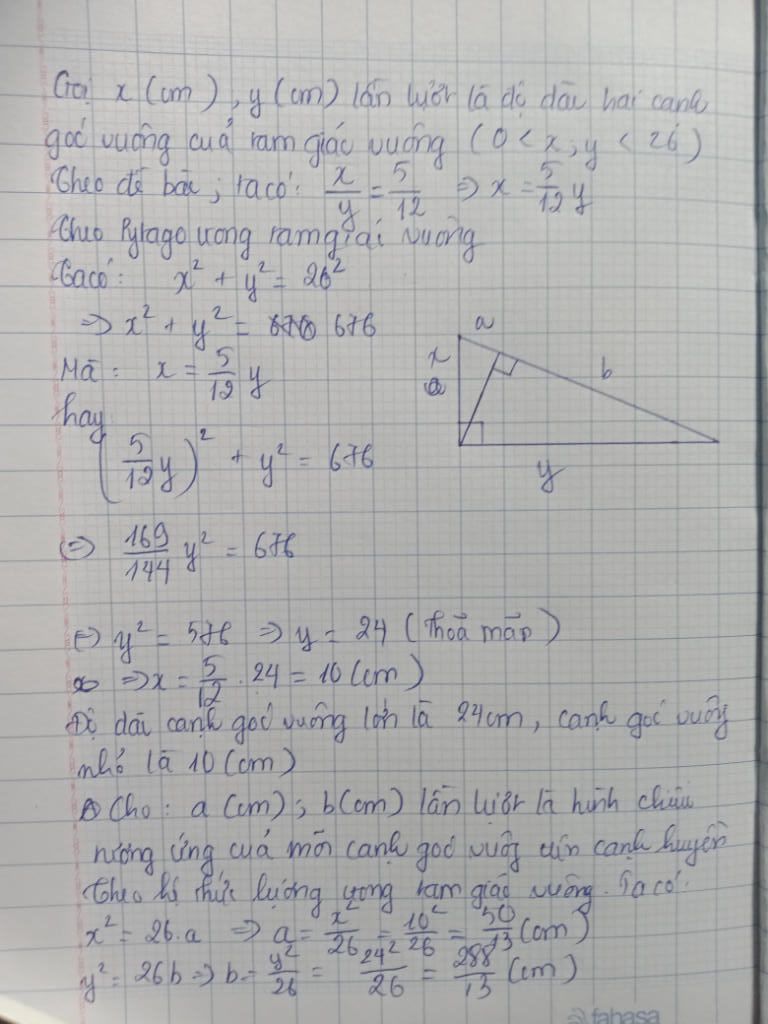 Gọi x (cm), y (cm) lần lượt là độ dài hai cạnh
góc vuông của tam giác vuông (0 < x, y < 26)
Theo đề bài, ta có: x/y = 5/12 => x = 5/12 y
Theo Pytago trong tam giác vuông
Ta có: x² + y² = 26²
=> x² + y² = 676
Mà: x = 5/12 y
hay
(5/12 y)² + y² = 676
<=> 169/144 y² = 676
<=> y² = 576 => y = 24 (thoả mãn)
=> x = 5/12 . 24 = 10 (cm)
Độ dài cạnh góc vuông lớn là 24cm, cạnh góc vuông
nhỏ là 10 (cm)
Cho: a (cm); b (cm) lần lượt là hình chiếu
tương ứng của mỗi cạnh góc vuông trên cạnh huyền
Theo hệ thức lượng trong tam giác vuông. Ta có:
x² = 26.a => a = x²/26 = 10²/26 = 50/13 (cm)
y² = 26b => b = y²/26 = 24²/26 = 288/13 (cm)
a
x
b
y
fahasa